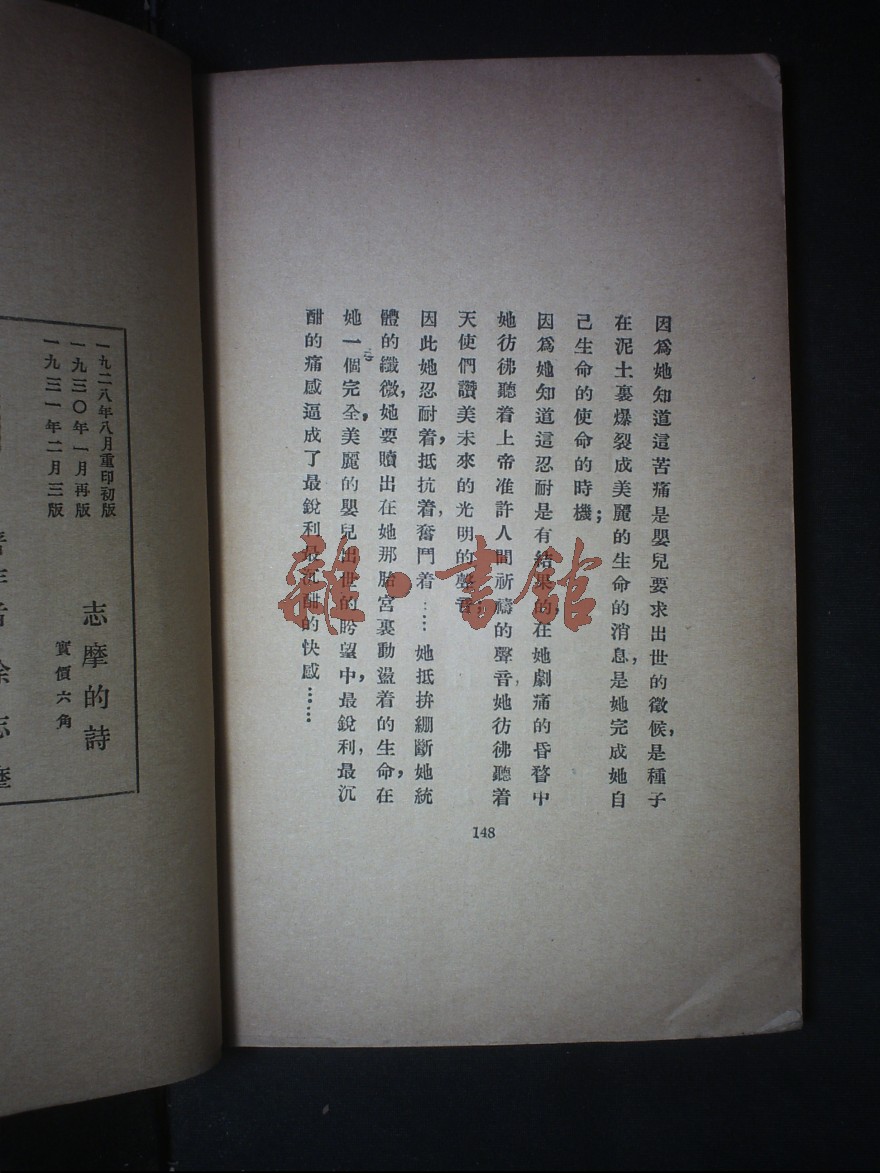 因爲她知道這苦痛是嬰兒要求出世的徵候，是種子
在泥土裏爆裂成美麗的生命的消息，是她完成她自
己生命的使命的時機；
因爲她知道這忍耐是有結果的，在她劇痛的昏瞀中
她彷彿聽着上帝准許人間祈禱的聲音，她彷彿聽着
天使們讚美未來的光明的聲音；
因此她忍耐着，抵抗着，奮鬥着……她抵拚綳斷她統
體的纖微，她要贖出在她那胎宮裏動盪着的生命，在
她一個完全，美麗的嬰兒出世的盼望中，最銳利，最沉
酣的痛感逼成了最銳利最沉酣的快感……
148
雜·書館
一九二八年八月重印初版
一九三〇年一月再版
一九三一年二月三版
志摩的詩
實價六角
徐志摩